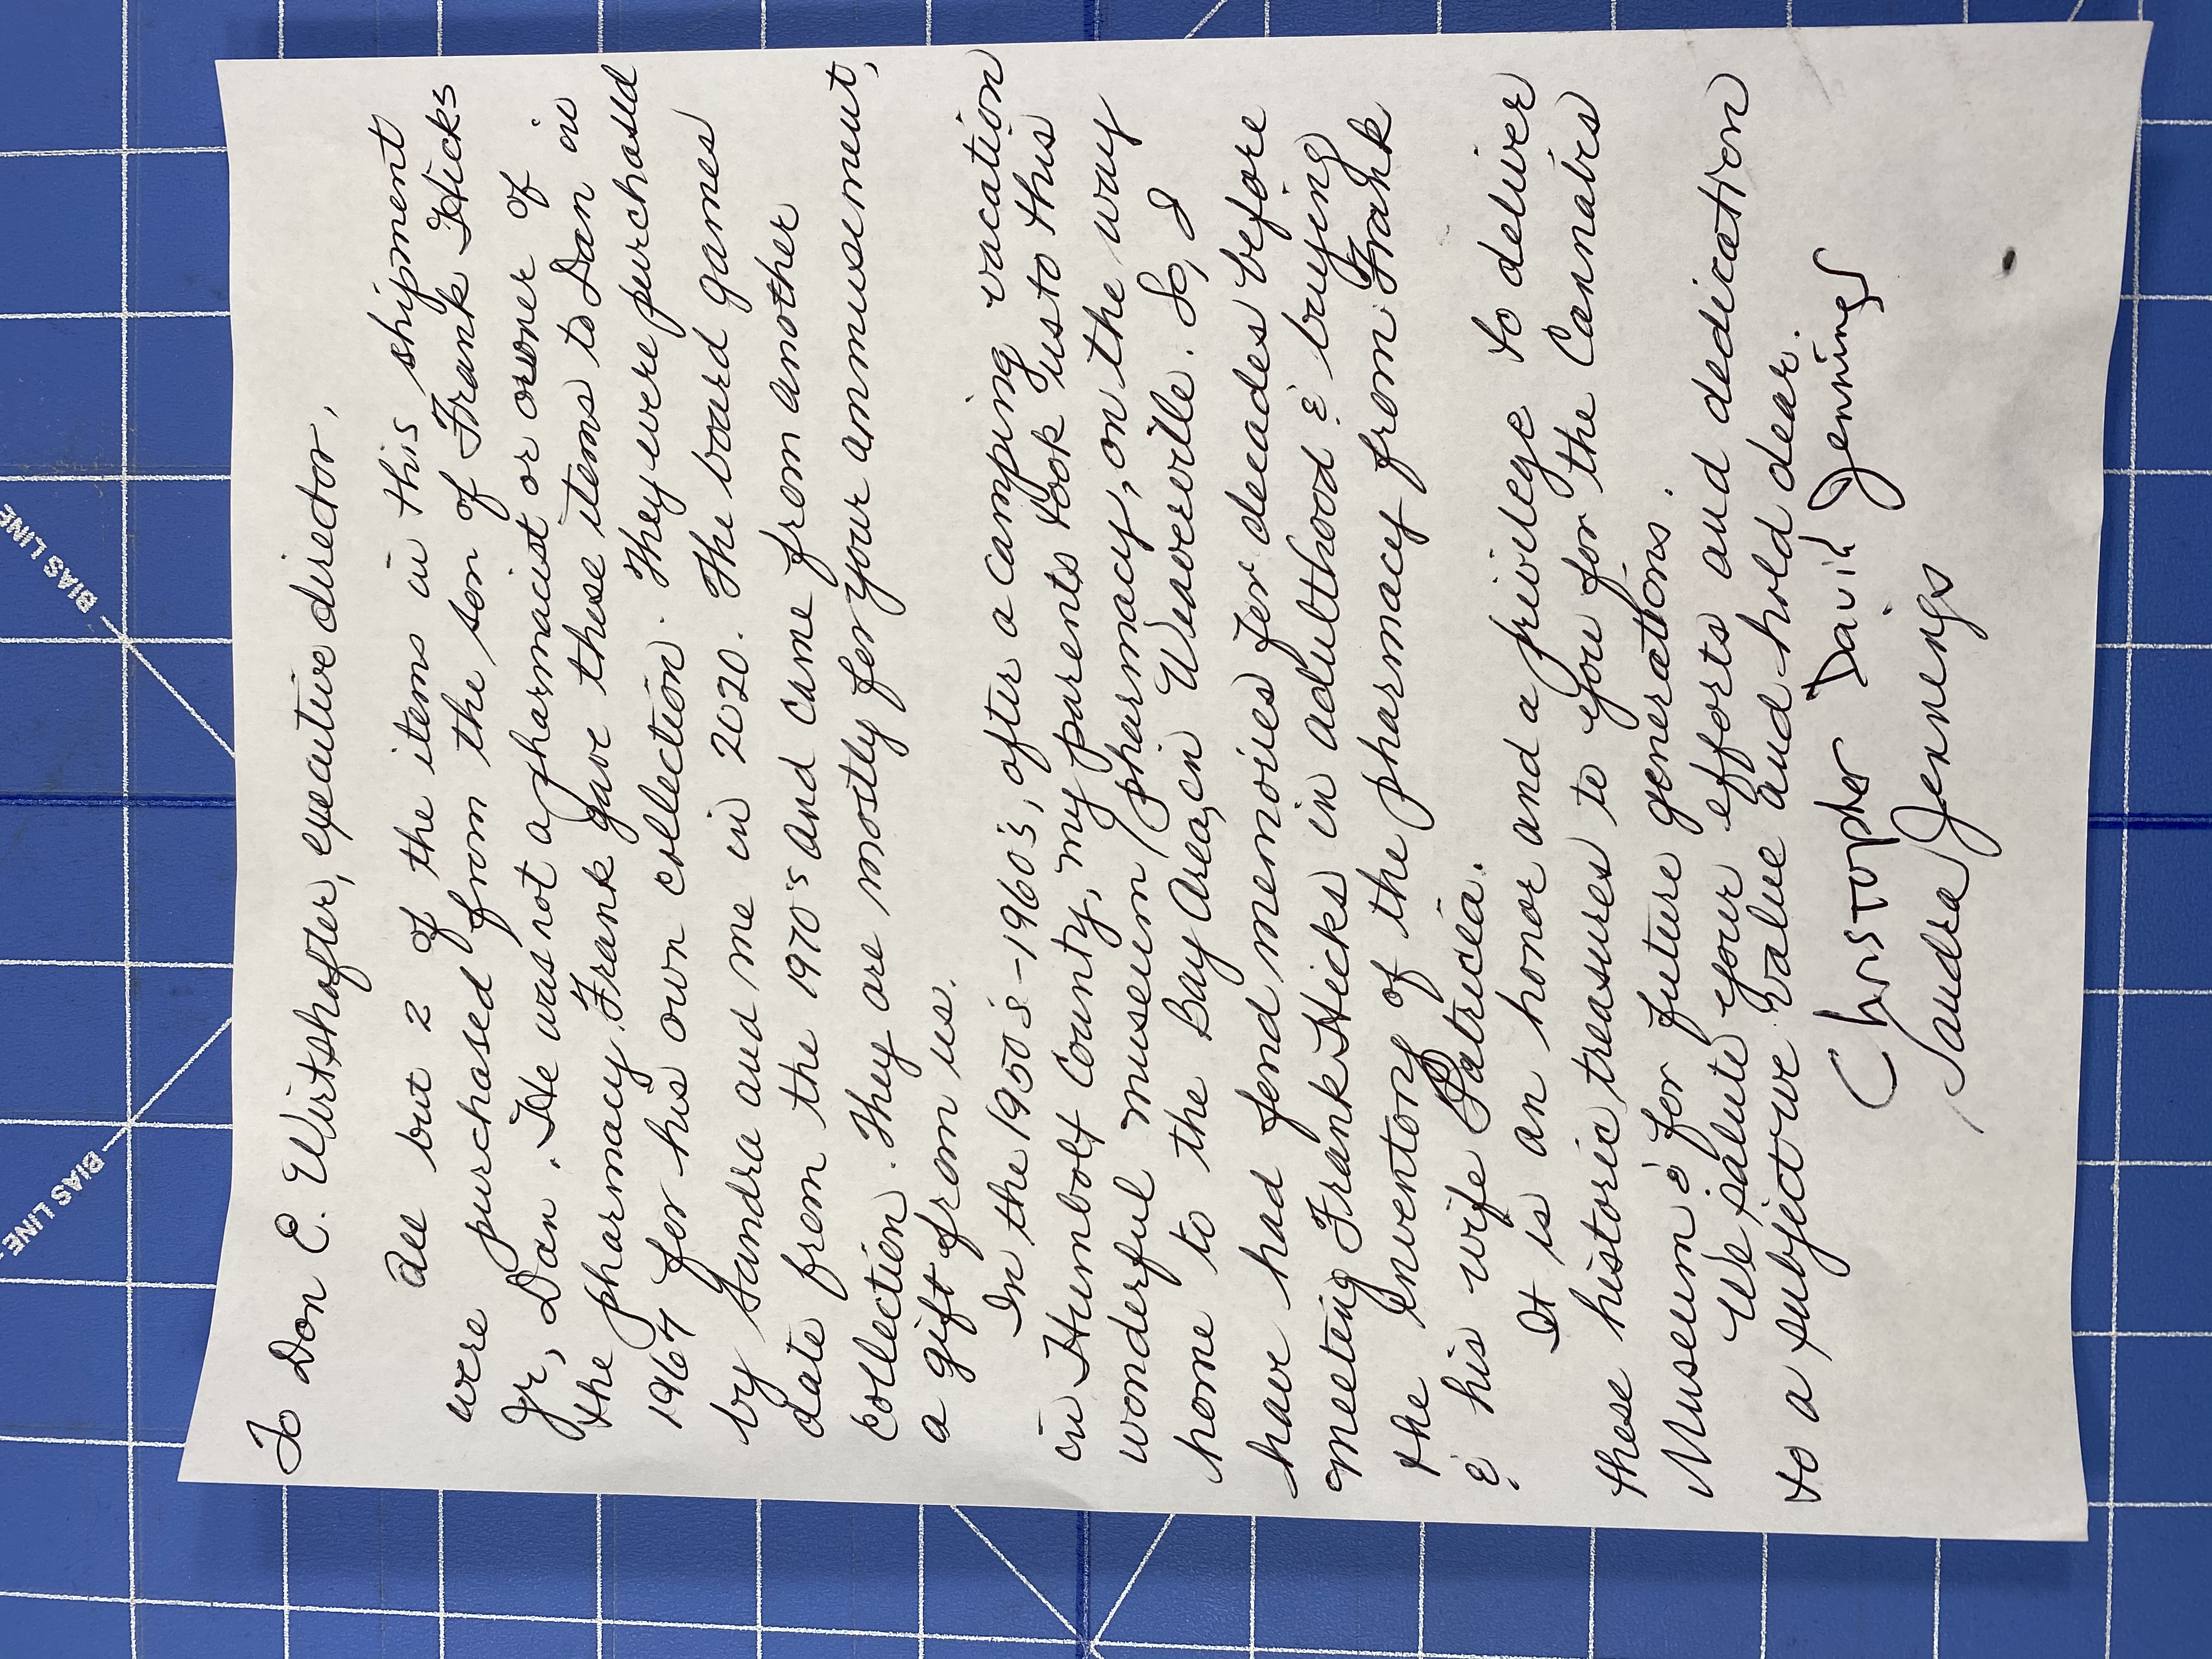 BIAS LINE
BIAS LINE
To Don E. Wirtshafter, executive director,
All but 2 of the items in this shipment
were purchased from the son of Frank Hicks
Jr, Dan. He was not a pharmacist or owner of
the pharmacy. Frank gave these items to Dan in
1964 for his own collection. They were purchased
by Sandra and me in 2020. The board games
date from the 1970's and came from another
collection. They are mostly for your ammusement,
a gift from us.
In the 1950's-1960's, after a camping vacation
in Humbolt County, my parents took us to this
wonderful museum/pharmacy, on the way
home to the Bay Area, in Weaverville. So, I
have had fond memories for decades before
meeting Frank Hicks in adulthood & buying
the inventory of the pharmacy from Frank
& his wife Patricia.
It is an honor and a privilege to deliver
these historic treasures to you for the Cannabis
Museum & for future generations.
We salute your efforts and dedication
to a subject we value and hold dear.
Christopher David Jennings
Sandra Jennings